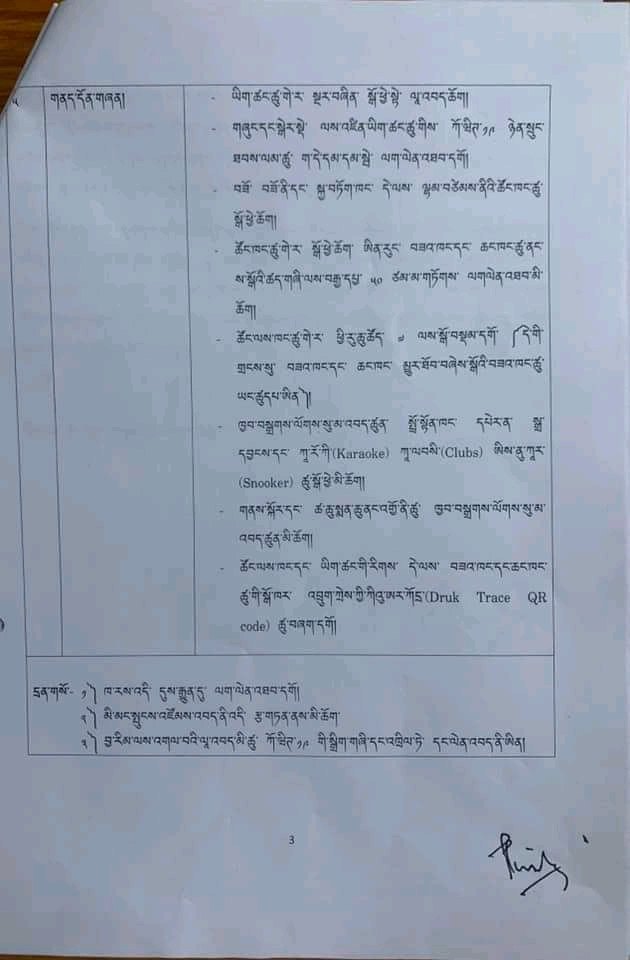 ༥ གནད་དོན་གཞན། - ཡིག་ཚང་ཚུ་གེ་ར་ སྔར་བཞིན་ སྒོ་ཕྱེ་སྟེ་ ལཱ་འབད་ཆོག།
- གཞུང་དང་སྒེར་སྡེ་ ལས་འཛིན་ཡིག་ཚང་ཚུ་གིས་ ཀོ་ཝིཌ་༡༩ ཉེན་སྲུང་
ཐབས་ལམ་ཚུ་ ག་དེ་དམ་དམ་སྦེ་ ལག་ལེན་འཐབ་དགོ།
- བཟོ་ བཟོ་ནི་དང་ སྐྱ་བཏོག་ཁང་ དེ་ལས་ ལྷམ་བཙེམས་ནིའི་ཚོང་ཁང་ཚུ་
སྒོ་ཕྱེ་ཆོག།
- ཚོང་ཁང་ཚུ་གེ་ར་ སྒོ་ཕྱེ་ཆོག ཨིན་རུང་ བཟའ་ཁང་དང་ ཆང་ཁང་ཚུ་ནང་
ས་སྒོའི་ཚད་གཞི་ལས་བརྒྱ་དཔྱ་ ༥༠ ཙམ་མ་གཏོགས་ ལགལེན་འཐབ་མི་
ཆོག།
- ཚོང་ལས་ཁང་ཚུ་གེ་ར་ ཕྱི་རུ་ཆུ་ཚོད་ ༧ ལས་སྒོ་བསྡམ་དགོ། ༼དེ་གི་
གྲངས་སུ་ བཟའ་ཁང་དང་ ཆང་ཁང་ མྱུར་ཐོབ་བཞེས་སྒོའི་བཟའ་ཁང་ཚུ་
ཡང་ཚུདཔ་ཨིན༽།
- ཁྱབ་བསྒྲགས་ལོགས་སུ་མ་འབད་ཚུན་ སྤྲོ་སྟོན་ཁང་ དཔེར་ན་ སྒྲ་
དབྱངས་དང་ ཀཱ་རོ་ཀི་(Karaoke) ཀཱ་ལབསི་(Clubs) ཨིས་ནུ་ཀཱར་
(Snooker) ཚུ་སྒོ་ཕྱེ་མི་ཆོག།
- གནས་སྐོར་དང་ ཚ་ཆུ་སྨན་ཆུ་ནང་འགྱོ་ནི་ཚུ་ ཁྱབ་བསྒྲགས་ལོགས་སུ་མ་
འབད་ཚུན་མི་ཆོག།
- ཚོང་ལས་ཁང་དང་ ཡིག་ཚང་གི་རིགས་ དེ་ལས་ བཟའ་ཁང་དང་ཆང་ཁང་
ཚུ་གི་སྒོ་ཁར་ འབྲུག་ཊྲེས་ཀྱི་ཀིའུ་ཨར་ཀོཌ་(Druk Trace QR
code) ཚུ་བཞག་དགོ།
དྲན་གསོ་- ༡༽ ཁ་རས་འདི་ དུས་རྒྱུན་དུ་ ལག་ལེན་འཐབ་དགོ།
༢༽ མི་མང་སྤུངས་འཛོམས་འབད་ནི་འདི་ རྩ་གཏན་ནས་མི་ཆོག
༣༽ བྱ་རིམ་ལས་འགལ་བའི་ལཱ་འབད་མི་ཚུ་ ཀོ་ཝིཌ་༡༩ གི་སྒྲིག་གཞི་དང་འཁྲིལ་ཏེ་ དང་ལེན་འབད་ནི་ཨིན།
3